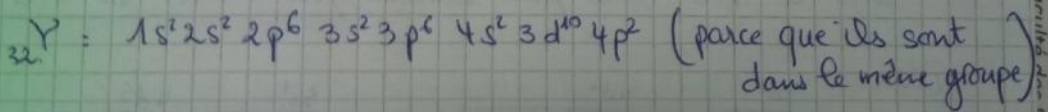 ₃₂Y : 1s² 2s² 2p⁶ 3s² 3p⁶ 4s² 3d¹⁰ 4p² (parce que ils sont
dans le même groupe)